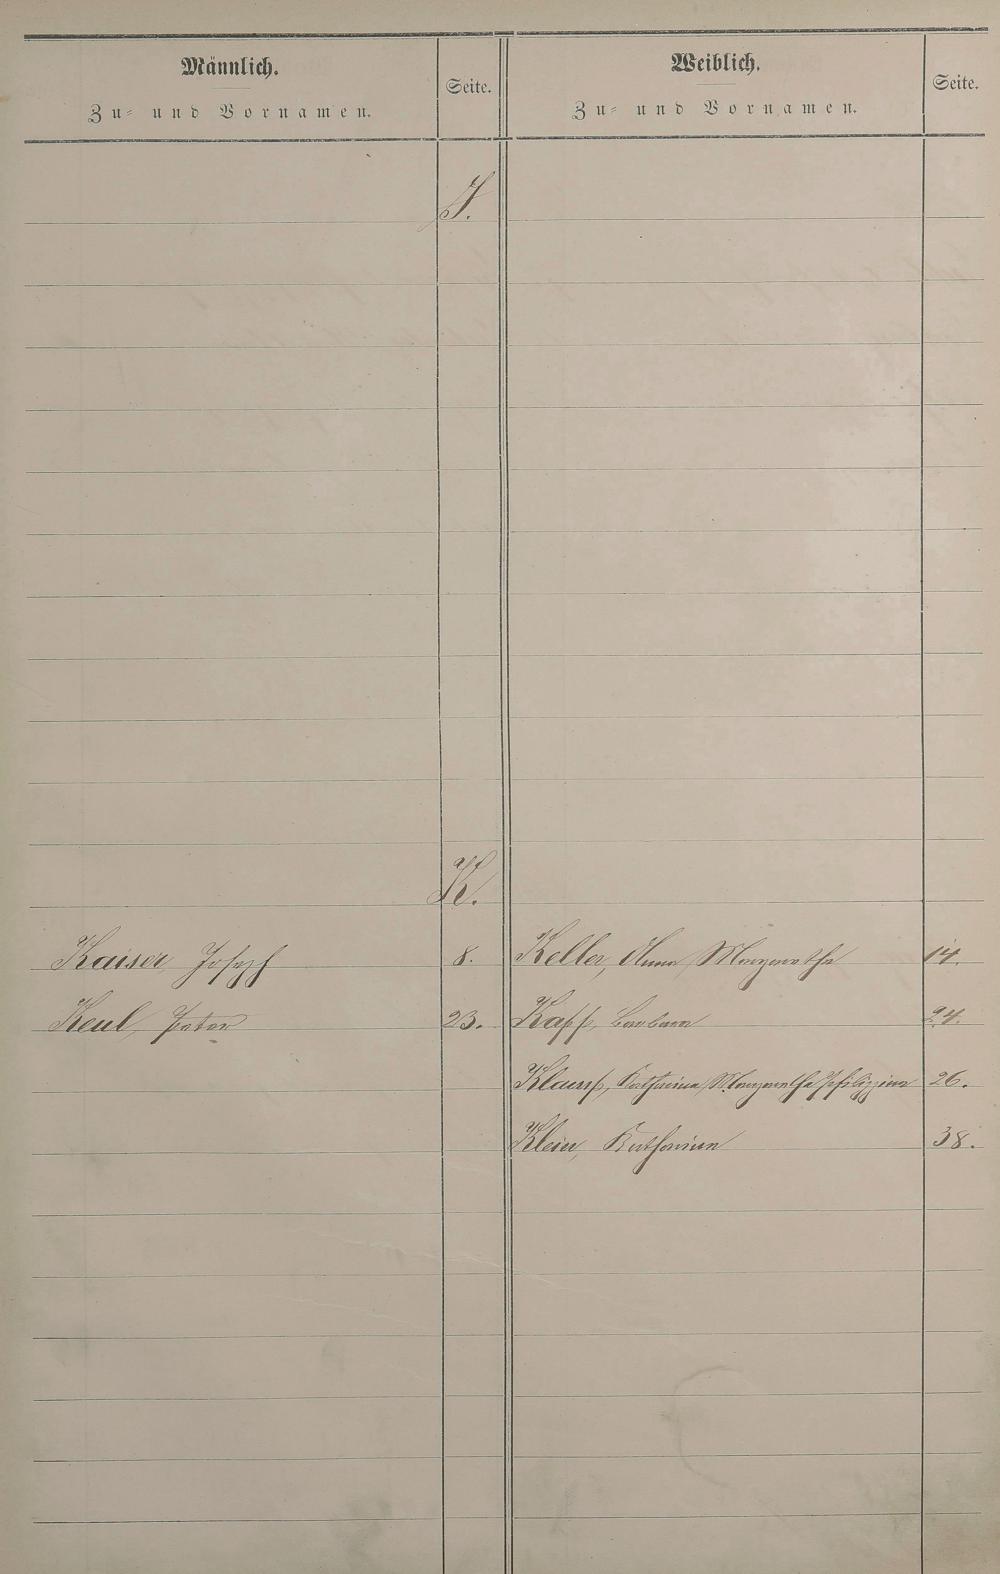 Männlich.
Zu- und Vornamen.
Seite.
Weiblich.
Zu- und Vornamen.
Seite.
J.
K.
Kaiser, Joseph 8.
Keller, Anna Margaretha 14.
Keul, Peter 23.
Kapp, Barbara 24.
Katharina Margaretha Philippina 26.
Klein, Katharina 38.